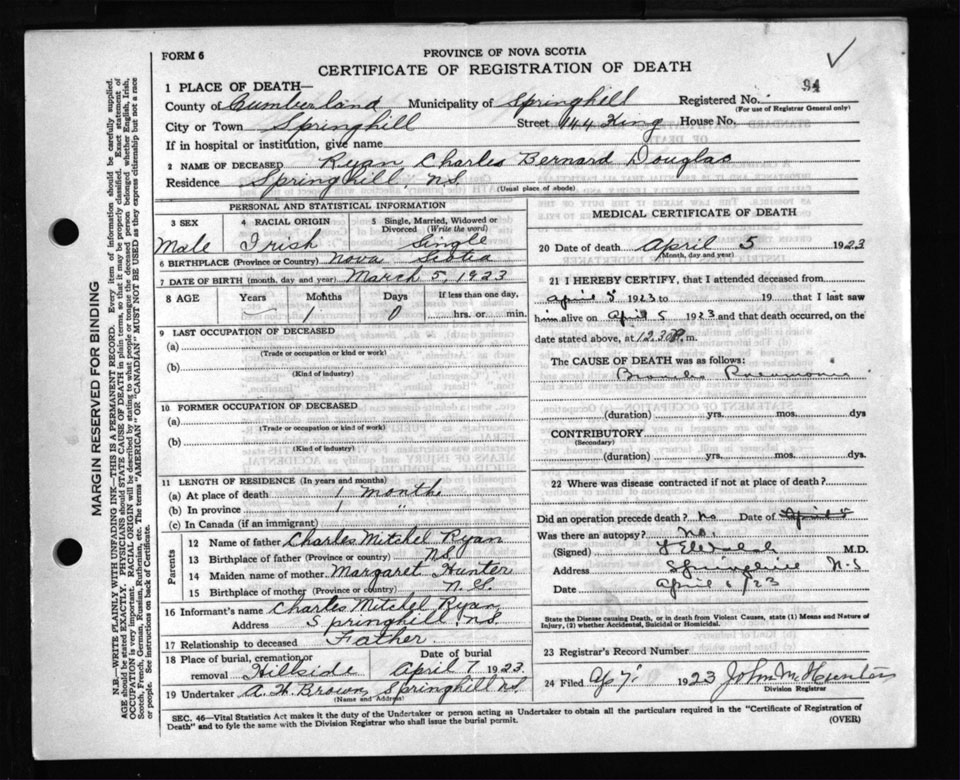 FORM 6
PROVINCE OF NOVA SCOTIA
CERTIFICATE OF REGISTRATION OF DEATH
94
1 PLACE OF DEATH—
County of Cumberland Municipality of Springhill Registered No.
(For use of Registrar General only)
City or Town Springhill Street 144 King House No.
If in hospital or institution, give name
2 NAME OF DECEASED Ryan Charles Bernard Douglas
Residence Springhill N.S.
(Usual place of abode)
PERSONAL AND STATISTICAL INFORMATION
3 SEX 4 RACIAL ORIGIN 5 Single, Married, Widowed or Divorced (Write the word)
Male Irish Single
6 BIRTHPLACE (Province or Country) Nova Scotia
7 DATE OF BIRTH (month, day and year) March 5, 1923
8 AGE Years Months Days If less than one day,
— 1 0 hrs. or min.
9 LAST OCCUPATION OF DECEASED
(a)
(Trade or occupation or kind or work)
(b)
(Kind of industry)
10 FORMER OCCUPATION OF DECEASED
(a)
(Trade or occupation or kind or work)
(b)
(Kind of industry)
11 LENGTH OF RESIDENCE (In years and months)
(a) At place of death 1 month
(b) In province 1 "
(c) In Canada (if an immigrant)
Parents
12 Name of father Charles Mitchel Ryan
13 Birthplace of father (Province or country) N.S.
14 Maiden name of mother Margaret Hunter
15 Birthplace of mother (Province or country) N.S.
16 Informant's name Charles Mitchel Ryan
Address Springhill N.S.
17 Relationship to deceased Father
18 Place of burial, cremation or removal Hillside Date of burial April 7 1923
19 Undertaker A. H. Brown, Springhill N.S.
(Name and Address)
MEDICAL CERTIFICATE OF DEATH
20 Date of death April 5 1923
(Month, day and year)
21 I HEREBY CERTIFY, that I attended deceased from
April 5 1923 to 19 that I last saw
him alive on April 5 1923 and that death occurred, on
date stated above, at 12.30 P. m.
The CAUSE OF DEATH was as follows:
Broncho Pneumonia
(duration) yrs. mos. dys
CONTRIBUTORY
(Secondary)
(duration) yrs. mos. dys.
22 Where was disease contracted if not at place of death?
Did an operation precede death? No Date of April 5
Was there an autopsy? No.
(Signed) M.D.
Address Springhill N-S
Date April 23
State the Disease causing Death, or in death from Violent Causes, state (1) Means and Nature of Injury, (2) whether Accidental, Suicidal or Homicidal.
23 Registrar's Record Number
24 Filed Ap 7 1923 John McHunter
Division Registrar
SEC. 46—Vital Statistics Act makes it the duty of the Undertaker or person acting as Undertaker to obtain all the particulars required in the "Certificate of Registration of
Death" and to fyle the same with the Division Registrar who shall issue the burial permit.
(OVER)
MARGIN RESERVED FOR BINDING
N.B.—WRITE PLAINLY WITH UNFADING INK—THIS IS A PERMANENT RECORD. Every item of information should be carefully supplied.
AGE should be stated EXACTLY. PHYSICIANS should STATE CAUSE OF DEATH in plain terms, so that it may be properly classified. Exact statement of
OCCUPATION is very important. RACIAL ORIGIN will be described by stating to what people or tongue the deceased person belonged, whether English, Irish,
Scotch, French, German, Russian, Ruthenian, etc. The terms "AMERICAN" OR "CANADIAN" MUST NOT BE USED as they express citizenship but not a race
or people. See instructions on back of Certificate.